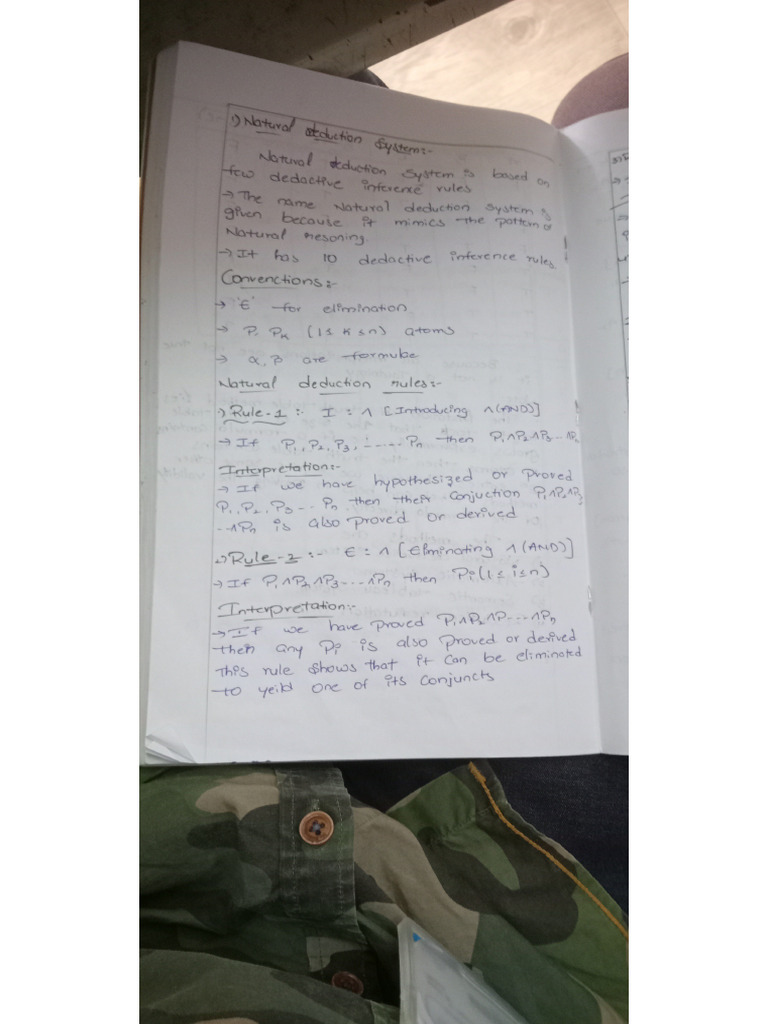 1) Natural deduction System:-
Natural deduction System is based on
few dedactive inference rules
→ The name Natural deduction System is
given because it mimics the pattern of
Natural resoning
→ It has 10 dedactive inference rules
Convenctions:-
→ 'E' for elimination
→ P, Pₖ (1 ≤ K ≤ n) atoms
→ α, β are formube
Natural deduction rules:-
1) Rule-1 :- I : ∧ [Introducing ∧(AND)]
→ If P₁, P₂, P₃, ...... Pn then P₁∧P₂∧P₃...∧Pn
Interpretation:-
→ If we have hypothesized or Proved
P₁, P₂, P₃... Pn then their Conjuction P₁∧P₂∧P₃
...∧Pn is also proved or derived
2) Rule-2 :- E : ∧ [Elminating ∧(AND)]
→ If P₁∧P₂∧P₃....∧Pn then Pi (1 ≤ i ≤ n)
Interpretation:-
→ If we have Proved P₁∧P₂∧P....∧Pn
then any Pi is also Proved or derived
This rule Shows that it Can be eliminated
to yeild One of its Conjuncts